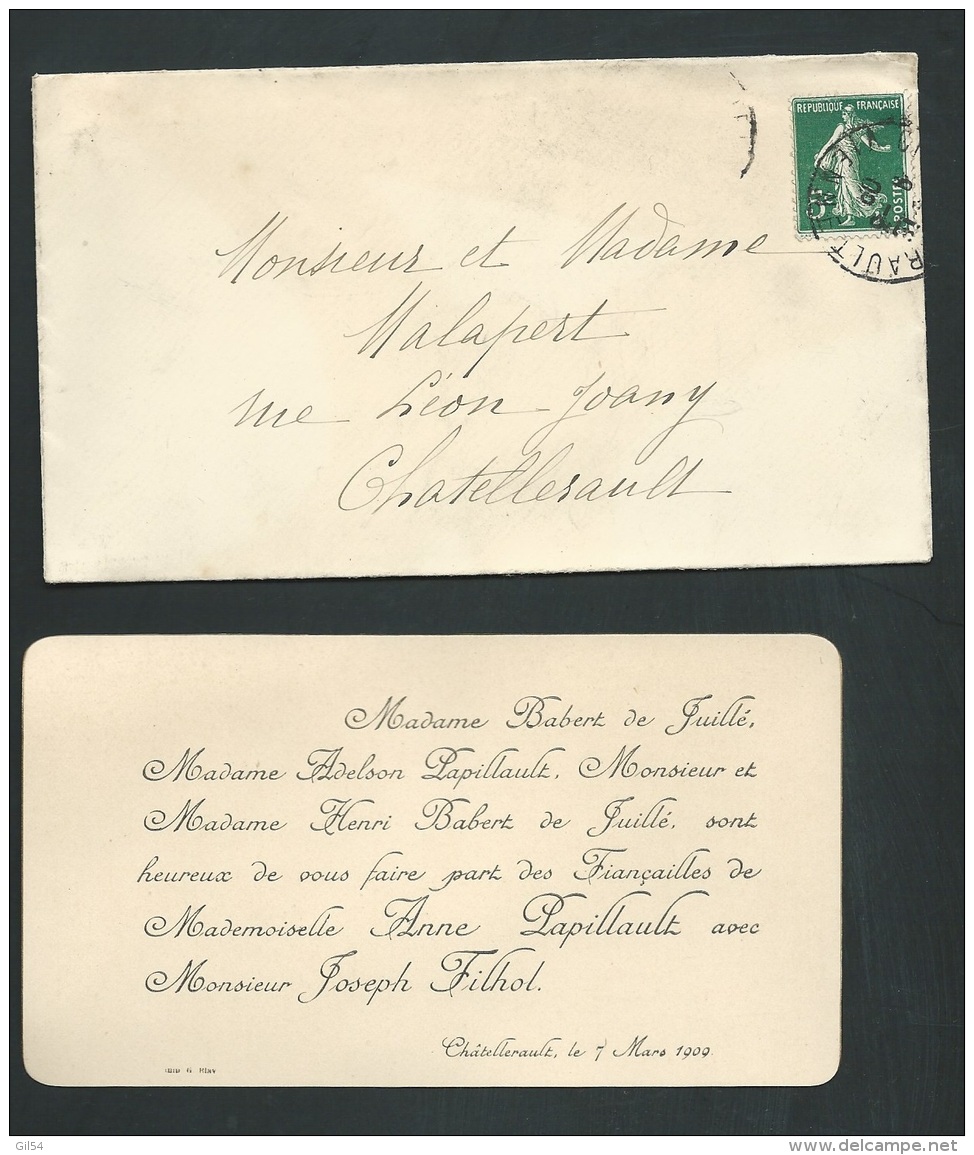 REPUBLIQUE FRANÇAISE
POSTES
Monsieur et Madame
Malapert
rue Léon Joany
Chatellerault
Madame Babert de Juillé,
Madame Adelson Papillault, Monsieur et
Madame Henri Babert de Juillé, sont
heureux de vous faire part des Fiançailles de
Mademoiselle Anne Papillault avec
Monsieur Joseph Filhol.
Châtellerault, le 7 Mars 1909.
Gil54
www.delcampe.net